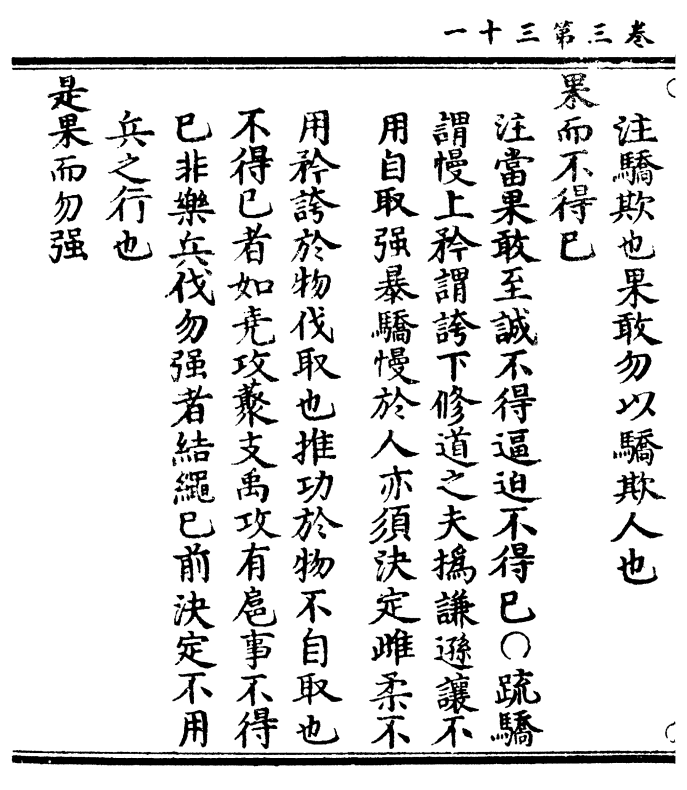 卷三第三十一
注驕欺也果敢勿以驕欺人也
果而不得已
注當果敢至誠不得逼迫不得已〇疏驕
謂慢上矜謂誇下修道之夫撝謙遜讓不
用自取强暴驕慢於人亦須決定雌柔不
用矜誇於物伐取也推功於物不自取也
不得已者如堯攻藂支禹攻有扈事不得
已非樂兵伐勿强者結繩已前決定不用
兵之行也
是果而勿强